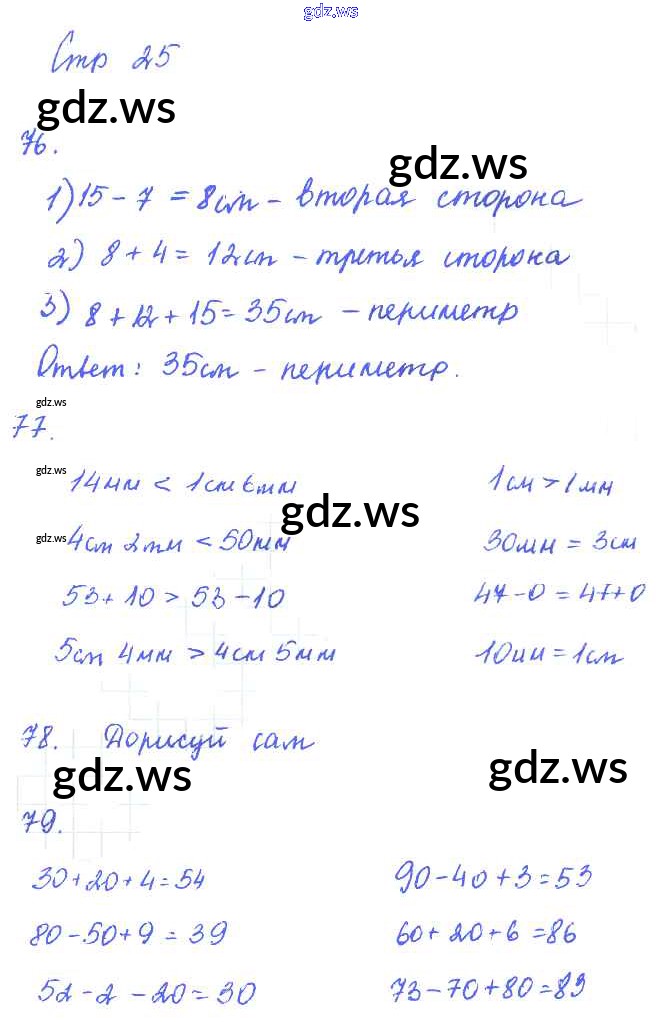 gdz.ws
Стр 25
gdz.ws
76.
gdz.ws
1) 15 - 7 = 8см - вторая сторона
2) 8 + 4 = 12см - третья сторона
3) 8 + 12 + 15 = 35см - периметр
Ответ: 35см - периметр.
gdz.ws
77.
gdz.ws
14мм < 1см 6мм 1см > 1мм
gdz.ws
gdz.ws
4см 2мм < 50мм 30мм = 3см
53 + 10 > 53 - 10 47 - 0 = 47 + 0
5см 4мм > 4см 5мм 10мм = 1см
78. Дорисуй сам
gdz.ws gdz.ws
79.
30 + 20 + 4 = 54 90 - 40 + 3 = 53
80 - 50 + 9 = 39 60 + 20 + 6 = 86
52 - 2 - 20 = 30 73 - 70 + 80 = 83